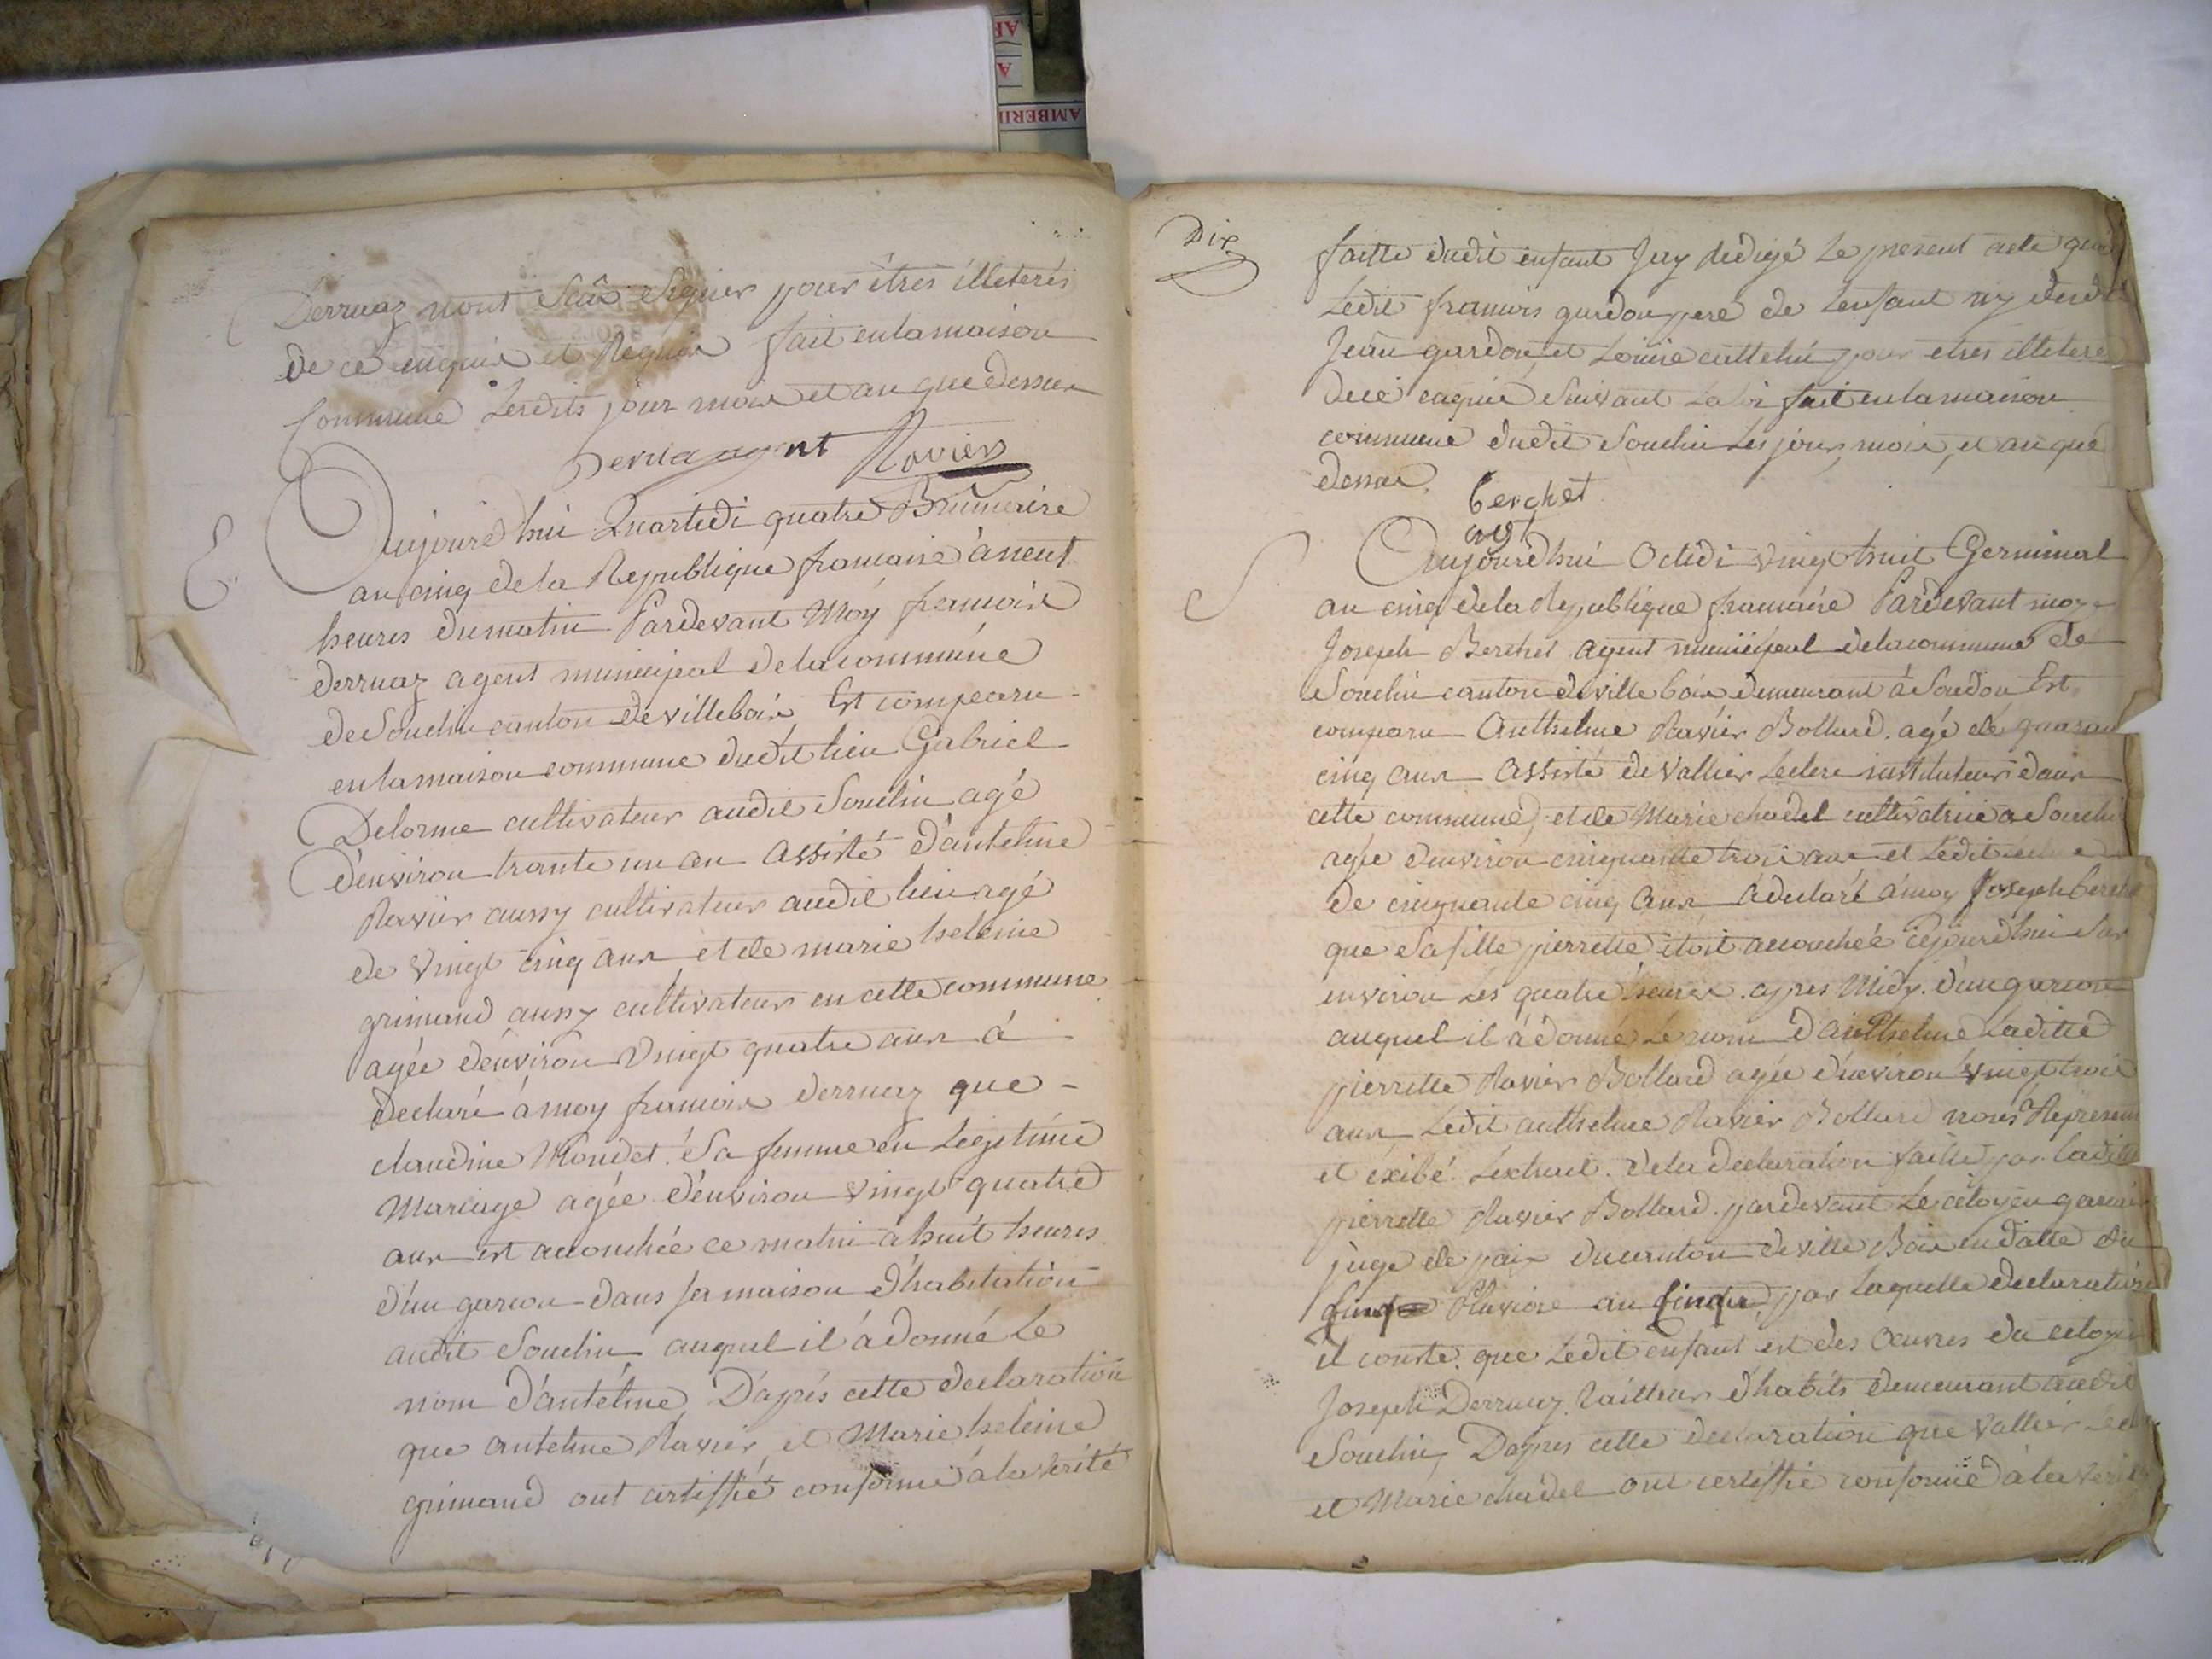 Derruaz nont Scû Signer pour êtres illeterés
de ce enquis et Requis fait en la maison
Commune Lesdits jour mois et an que dessus
Derruaz agent Ravier
E.
Aujourd'hui Quartidi quatre Brumaire
an cinq de la Republique francaise à neuf
heures du matin Pardevant Moy francois
derruaz agent municipal de la commune
de Souclin canton de villebois Est comparu
en la maison commune dudit lieu Gabriel
Delorme cultivateur audit Souclin agé
d'environ trante un an assisté d'antelme
Ravier aussy cultivateur audit lieu agé
de vingt cinq ans et de marie heleine
grimand aussy cultivateur en cette commune
agée d'environ vingt quatre ans à
declaré à moy francois derruaz que
claudine Mondet Sa femme en Legitime
Mariage agée d'environ vingt quatre
ans est accouchée ce matin à huit heures
d'un garcon dans sa maison d'habitation
audit Souclin auquel il à donné Le
nom d'antelme D'aprés cette declaration
que antelme Ravier et Marie heleine
grimand ont certiffié conforme à la vérité
Dix
faitte dudit enfant Jay redigé Le present acte que
Ledit francois gardon pere de Lenfant ny
Jean gardon et Louise cuttelin pour etres illetere
de ce enquis Suivant La loi fait en la maison
commune dudit Souclin Les jour, mois, et an que
dessus.
Berchet
agt
Aujourdhui Octidi vingt huit Germinal
an cinq de la Republique francaise Pardevant moy
Joseph Berchet agent municipal de la commune de
Souclin canton de ville bois demeurant à Soudon Est
comparu Anthelme Ravier Bollard agé de quaran
cinq ans assisté de Vallier Leclerc instituteur dans
cette commune, et de Marie chadel cultivatrice a Souclin
agée d'environ cinquante trois ans et Ledit
de cinquante cinq ans à declaré à moy Joseph berchet
que Sa fille pierrette étoit accouchée cejourdhui Sur
environ Les quatre heures apres Midy d'un garcon
auquel il à donné Le nom d'Anthelme Laditte
pierrette Ravier Bollard agée d'environ vingt trois
ans Ledit anthelme Ravier Bollard nous à Represent
et exibé Lextrait de la declaration faitte par Laditte
pierrette Ravier Bollard pardevant Le citoyen
juge de paix du canton de ville Bois en datte du
Cinq Pluviose an Cinq par Laquelle declaration
il conste que Ledit enfant est des Oeuvres du citoyen
Joseph Derruaz tailleur d'habits demeurant audit
Souclin, Dapres cette declaration que Vallier Lecl
et Marie chadel ont certiffié conforme à la verité